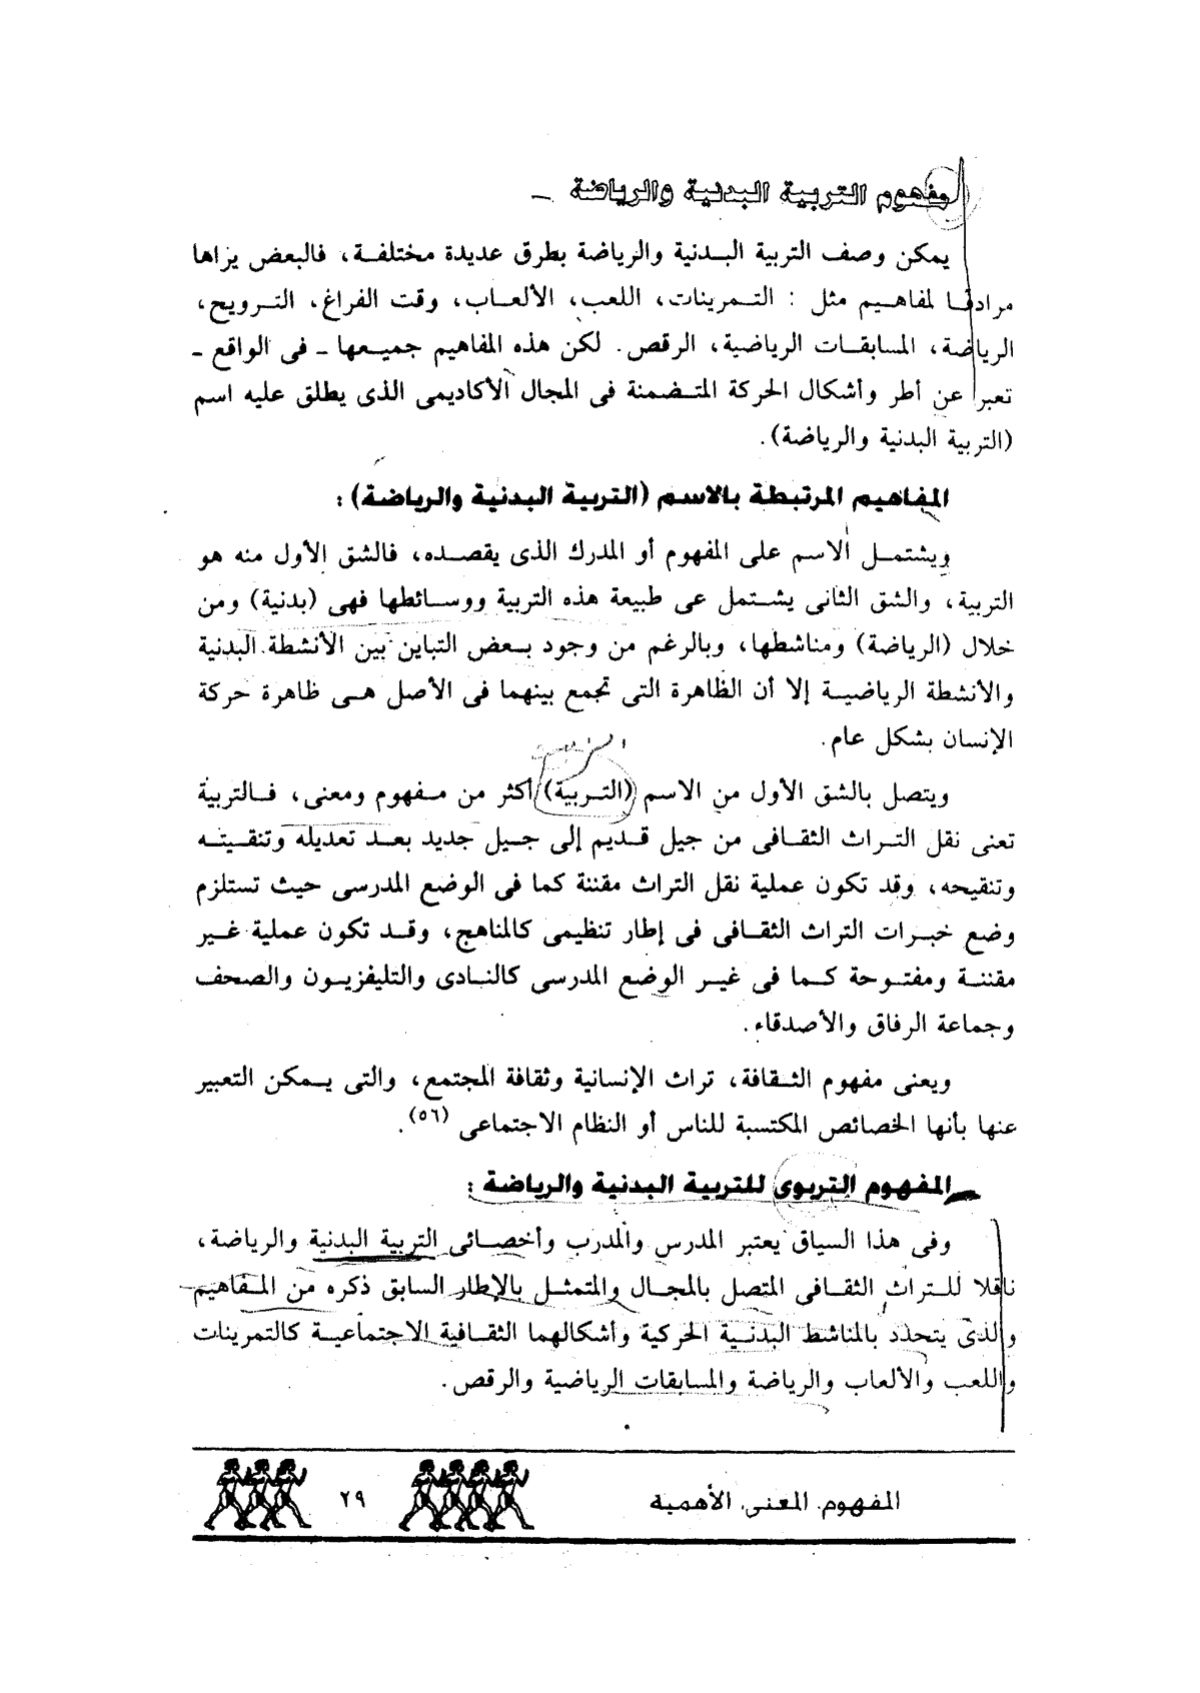 مفهوم التربية البدنية والرياضة
يمكن وصف التربية البدنية والرياضة بطرق عديدة مختلفة، فالبعض يراها
مرادفا لمفاهيم مثل : التمرينات، اللعب، الألعاب، وقت الفراغ، الترويح،
الرياضة، المسابقات الرياضية، الرقص. لكن هذه المفاهيم جميعها - فى الواقع -
تعبر عن أطر وأشكال الحركة المتضمنة فى المجال الأكاديمى الذى يطلق عليه اسم
(التربية البدنية والرياضة).
المفاهيم المرتبطة بالاسم (التربية البدنية والرياضة) :
ويشتمل الاسم على المفهوم أو المدرك الذى يقصده، فالشق الأول منه هو
التربية، والشق الثانى يشتمل عى طبيعة هذه التربية ووسائطها فهى (بدنية) ومن
خلال (الرياضة) ومناشطها، وبالرغم من وجود بعض التباين بين الأنشطة البدنية
والأنشطة الرياضية إلا أن الظاهرة التى تجمع بينهما فى الأصل هى ظاهرة حركة
الإنسان بشكل عام.
ويتصل بالشق الأول من الاسم (التربية) أكثر من مفهوم ومعنى، فالتربية
تعنى نقل التراث الثقافى من جيل قديم إلى جيل جديد بعد تعديله وتنقيته
وتنقيحه، وقد تكون عملية نقل التراث مقننة كما فى الوضع المدرسى حيث تستلزم
وضع خبرات التراث الثقافى فى إطار تنظيمى كالمناهج، وقد تكون عملية غير
مقننة ومفتوحة كما فى غير الوضع المدرسى كالنادى والتليفزيون والصحف
وجماعة الرفاق والأصدقاء.
ويعنى مفهوم الثقافة، تراث الإنسانية وثقافة المجتمع، والتى يمكن التعبير
عنها بأنها الخصائص المكتسبة للناس أو النظام الاجتماعى (٥٦).
المفهوم التربوى للتربية البدنية والرياضة :
وفى هذا السياق يعتبر المدرس والمدرب وأخصائى التربية البدنية والرياضة،
ناقلا للتراث الثقافى المتصل بالمجال والمتمثل بالإطار السابق ذكره من المفاهيم
والذى يتحدد بالمناشط البدنية الحركية وأشكالهما الثقافية الاجتماعية كالتمرينات
واللعب والألعاب والرياضة والمسابقات الرياضية والرقص.
المفهوم. المعنى. الأهمية
٢٩